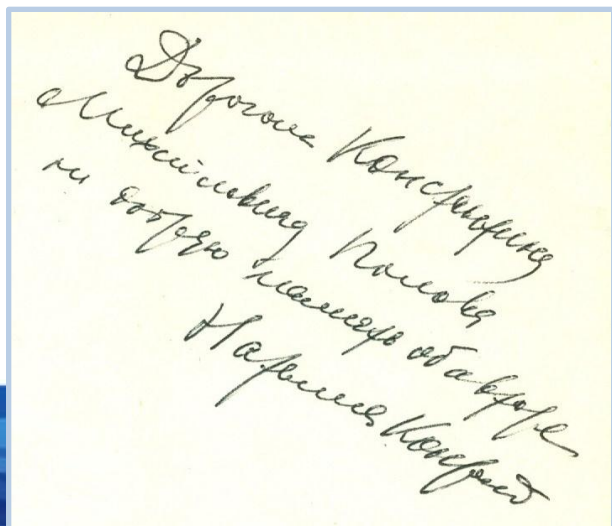 Дорогой Константину
Михайловичу Попову
на добрую память об авторе
Наталия Конрад